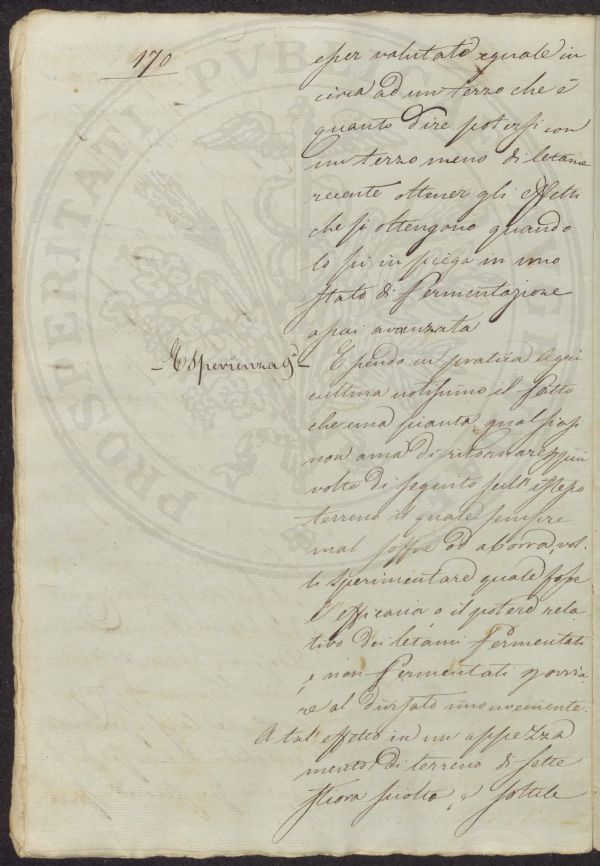 170
esser valutato eguale in
circa ad un terzo che è
quanto dire potersi con
un terzo meno di letame
recente ottener gli effetti
che si ottengono quando
lo si impiega in uno
stato di fermentazione
assai avanzata
- Esperienza 9ª -
Essendo in pratica Agri
cultura notissimo il fatto
che una pianta qual siasi
non ama di ritornare più
volte di seguito sull' istesso
terreno il quale sempre
mal soffre od aborra, vol-
li sperimentare quale fosse
l' efficacia o il potere rela
tivo dei letami fermentati
e non fermentati ovvia
re al divisato inconveniente.
A tal' effetto in un appezza
mento di terreno di sette
stiora sciolto e sottile
PROSPERITATI PVBLICAE